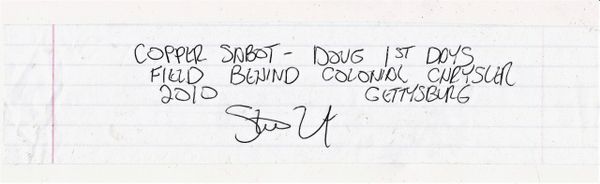 COPPER SABOT - DOUG 1ST DAYS
FIELD BEHIND COLONIAL CHRYSLER
2010 GETTYSBURG